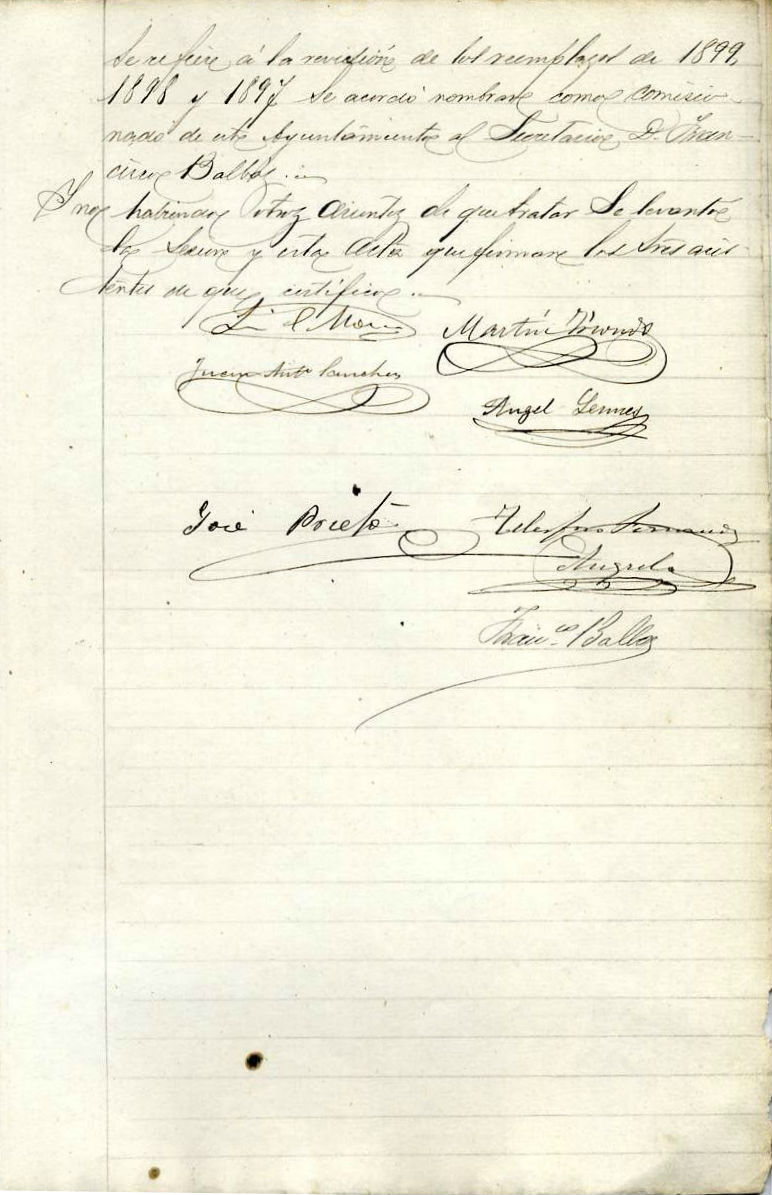 se refiere á la revisión de los reemplazos de 1899,
1898 y 1897 se acordó nombrar como comisio-
nado de este Ayuntamiento al Secretario D. Fran-
cisco Balboa.
Y no habiendo otros asuntos de que tratar se levantó
la sesión y esta acta que firman los Sres asis-
tentes de que certifico.
Martín
Juan Antº Sanchez
Angel
José Prieto Telesforo Fernandez
Francº Balboa